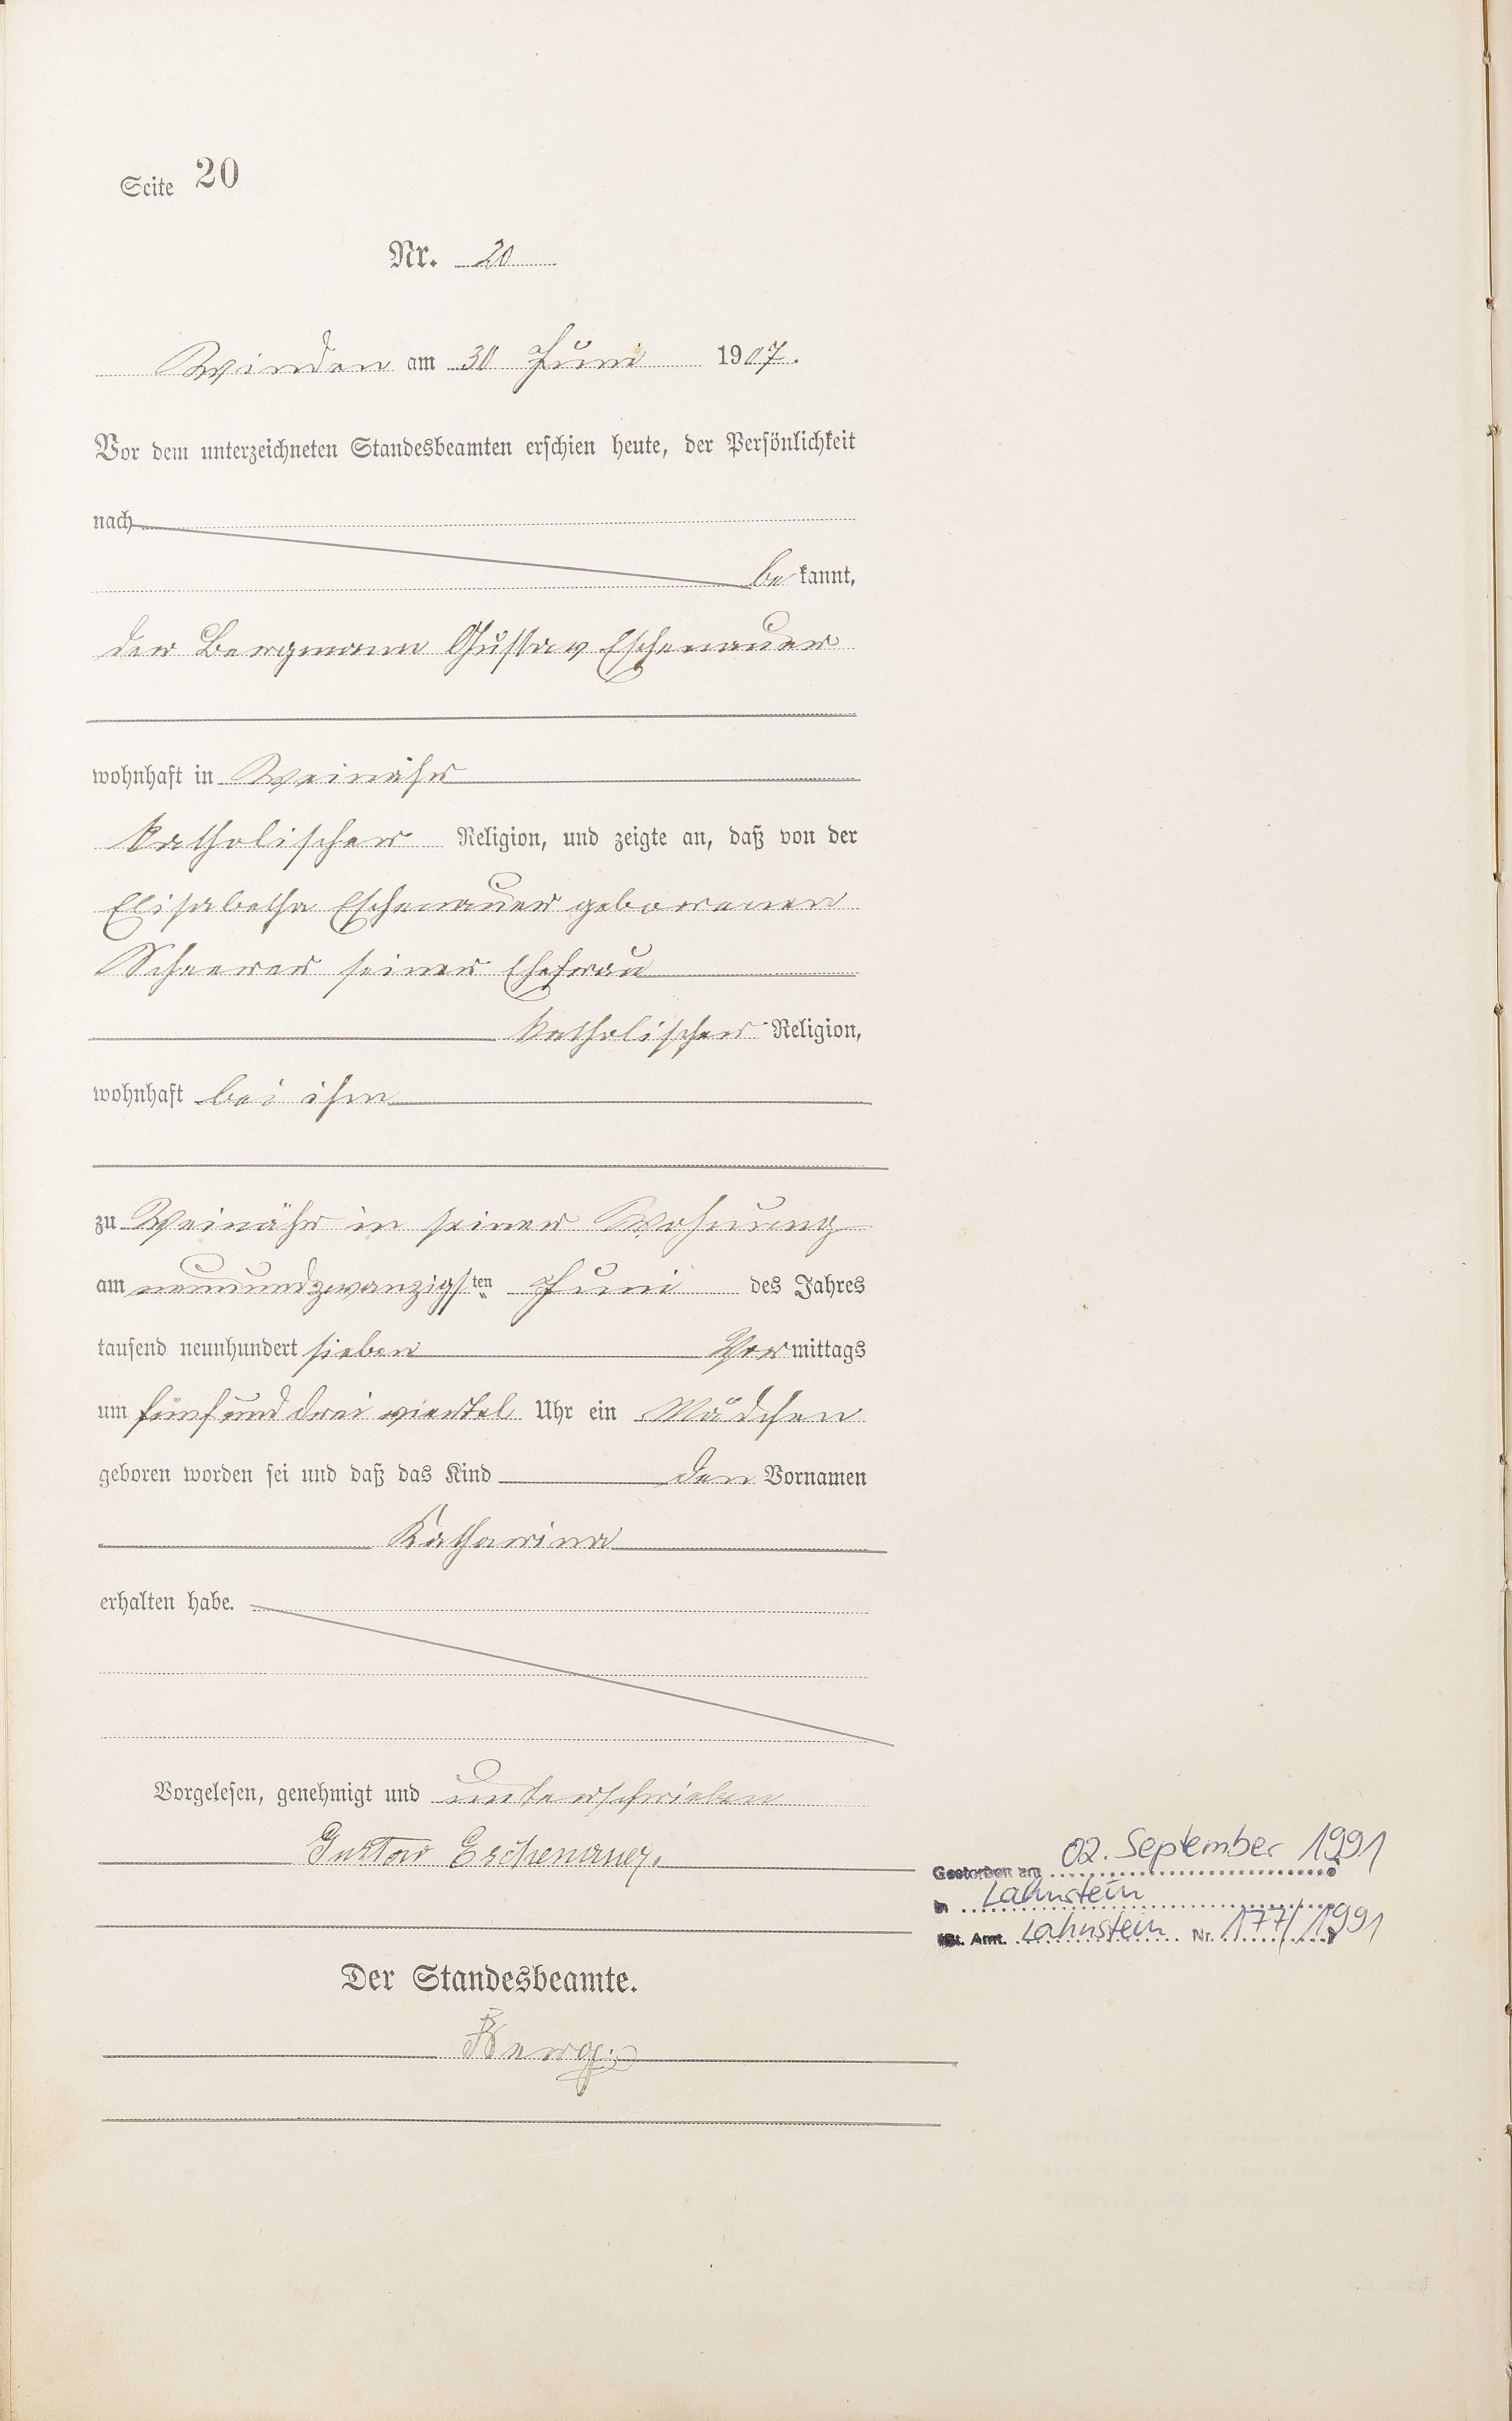 Seite 20
Nr. 20
Winden am 30 Juni 1907.
Vor dem unterzeichneten Standesbeamten erschien heute, der Persönlichkeit
nach
be kannt,
der Bergmann Gustav Eschenauer
wohnhaft in Weinähr
katholischer Religion, und zeigte an, daß von der
Elisabetha Eschenauer geborenen
Scheerer seiner Ehefrau
katholischer Religion,
wohnhaft bei ihm
zu Weinähr in seiner Wohnung
am neunundzwanzigsten Juni des Jahres
tausend neunhundert sieben Vormittags
um fünf und drei viertel Uhr ein Mädchen
geboren worden sei und daß das Kind den Vornamen
Katharina
erhalten habe.
Vorgelesen, genehmigt und unterschrieben
Gustav Eschenauer.
Der Standesbeamte.
Berg.
Gestorben am 02. September 1991
in Lahnstein
St. Amt. Lahnstein Nr. 177/1991